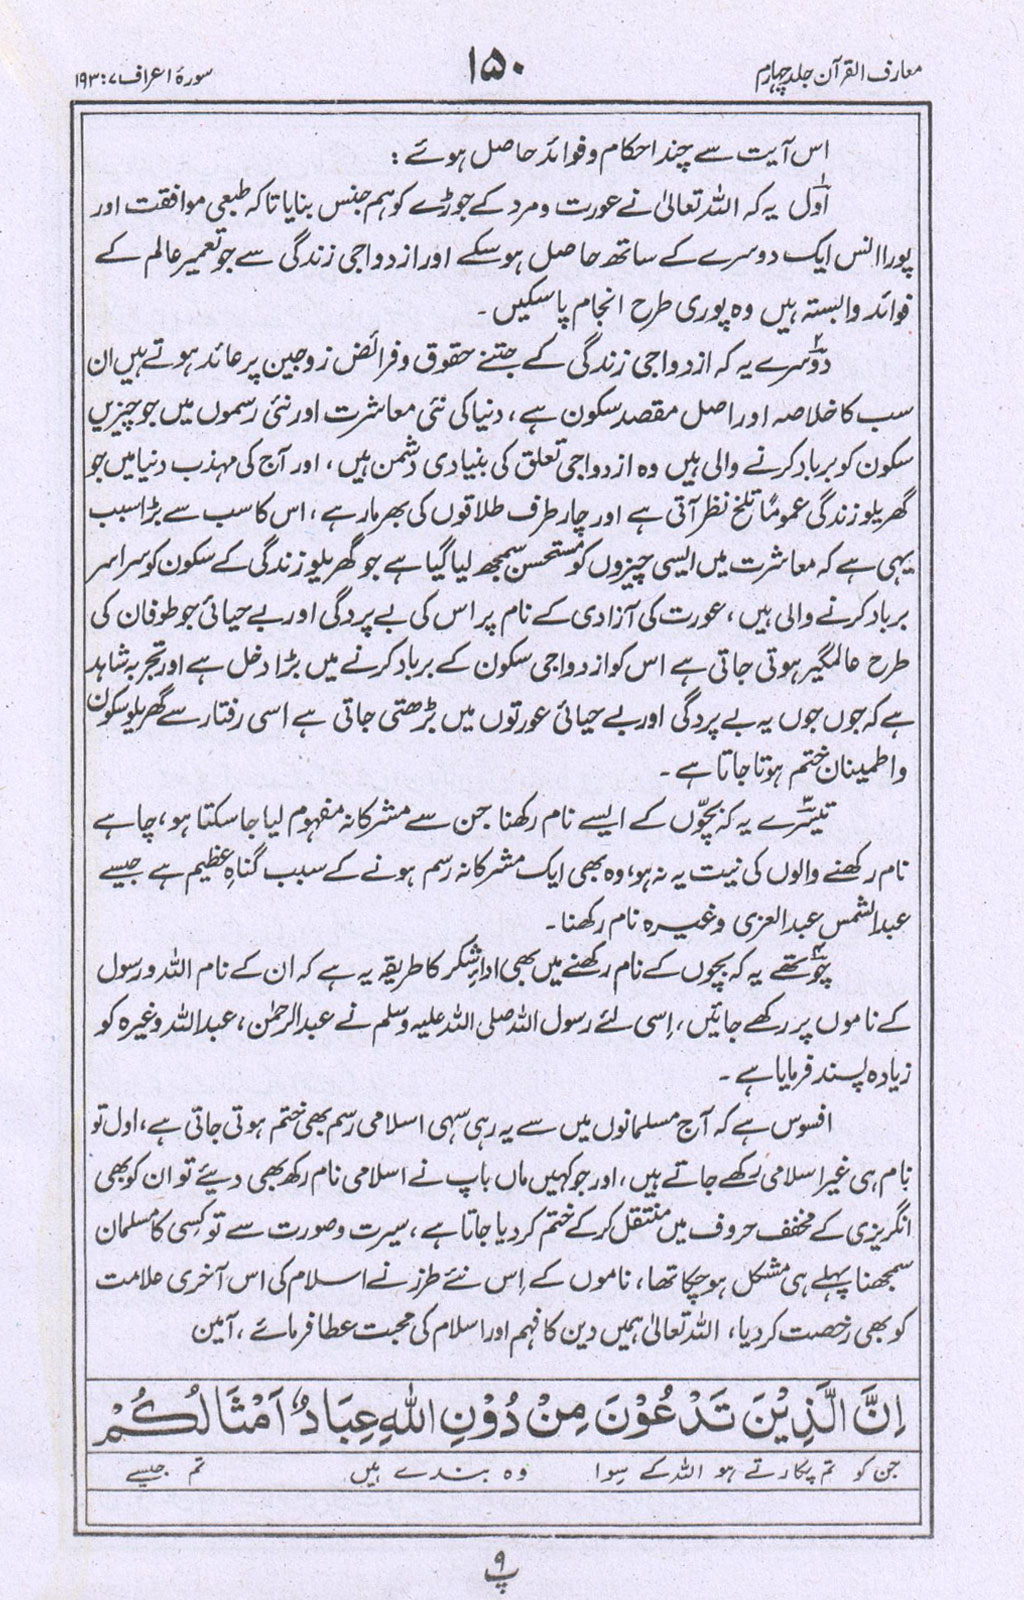 معارف القرآن جلد چہارم
۱۵۰
سورۂ اعراف ۷: ۱۹۳
اس آیت سے چند احکام و فوائد حاصل ہوئے :
اول یہ کہ اللہ تعالیٰ نے عورت و مرد کے جوڑے کو ہم جنس بنایا تاکہ طبعی موافقت اور
پورا انس ایک دوسرے کے ساتھ حاصل ہو سکے اور ازدواجی زندگی سے جو تعمیر عالم کے
فوائد وابستہ ہیں وہ پوری طرح انجام پا سکیں۔
دوسرے یہ کہ ازدواجی زندگی کے جتنے حقوق و فرائض زوجین پر عائد ہوتے ہیں ان
سب کا خلاصہ اور اصل مقصد سکون ہے، دنیا کی نئی معاشرت اور نئی رسموں میں جو چیزیں
سکون کو برباد کرنے والی ہیں وہ ازدواجی تعلق کی بنیادی دشمن ہیں، اور آج کی مہذب دنیا میں جو
گھریلو زندگی عموماً تلخ نظر آتی ہے اور چار طرف طلاقوں کی بھرمار ہے، اس کا سب سے بڑا سبب
یہی ہے کہ معاشرت میں ایسی چیزوں کو مستحسن سمجھ لیا گیا ہے جو گھریلو زندگی کے سکون کو سراسر
برباد کرنے والی ہیں، عورت کی آزادی کے نام پر اس کی بے پردگی اور بے حیائی جو طوفان کی
طرح عالمگیر ہوتی جاتی ہے اس کو ازدواجی سکون کے برباد کرنے میں بڑا دخل ہے اور تجربہ شاہد
ہے کہ جوں جوں یہ بے پردگی اور بے حیائی عورتوں میں بڑھتی جاتی ہے اسی رفتار سے گھریلو سکون
و اطمینان ختم ہوتا جاتا ہے۔
تیسرے یہ کہ بچّوں کے ایسے نام رکھنا جن سے مشرکانہ مفہوم لیا جا سکتا ہو، چاہے
نام رکھنے والوں کی نیت یہ نہ ہو، وہ بھی ایک مشرکانہ رسم ہونے کے سبب گناہِ عظیم ہے جیسے
عبدالشمس عبدالعزی وغیرہ نام رکھنا۔
چوتھے یہ کہ بچوں کے نام رکھنے میں بھی اداءِ شکر کا طریقہ یہ ہے کہ ان کے نام اللہ و رسول
کے ناموں پر رکھے جائیں، اِسی لئے رسول اللہ صلی اللہ علیہ وسلم نے عبدالرحمٰن، عبداللہ وغیرہ کو
زیادہ پسند فرمایا ہے۔
افسوس ہے کہ آج مسلمانوں میں سے یہ رہی سہی اسلامی رسم بھی ختم ہوتی جاتی ہے، اول تو
نام ہی غیر اسلامی رکھے جاتے ہیں، اور جو کہیں ماں باپ نے اسلامی نام رکھ بھی دیئے تو ان کو بھی
انگریزی کے مخفف حروف میں منتقل کرکے ختم کر دیا جاتا ہے، سیرت و صورت سے تو کسِی کا مسلمان
سمجھنا پہلے ہی مشکل ہو چکا تھا، ناموں کے اِس نئے طرز نے اسلام کی اس آخری علامت
کو بھی رخصت کر دیا، اللہ تعالیٰ ہمیں دین کا فہم اور اسلام کی محبت عطا فرمائے، آمین
اِنَّ الَّذِیْنَ تَدْعُوْنَ مِنْ دُوْنِ اللّٰہِ عِبَادٌ اَمْثَالُکُمْ
جن کو تم پکارتے ہو اللہ کے سِوا وہ بندے ہیں تم جیسے
۹
پ